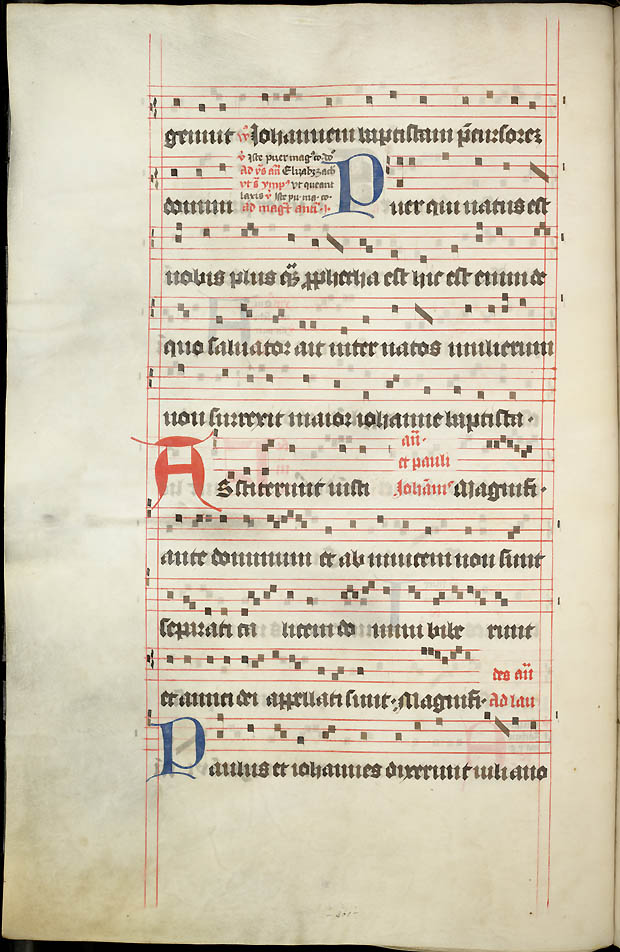 genuit v̄ Johannem baptistam p̄cursorez
v̄ Iste puer mag
ad vs̄ an̄ Elizab zach
vt queant
laxis v̄ Iste pu· ma· co·
domini ad mag̅t an̄
Puer qui natus est
nobis plus q̄ꝫ ꝓpheta est hic est enim de
quo saluator ait inter natos mulierum
non surrexit maior iohanne baptista·
an̄·
et pauli
Astiterunt iusti Johan̄ Magnifi·
ante dominum et ab inuicem non sunt
separati ca licem do mini bibe runt
des an̄
et amici dei appellati sunt· Magnifi· Ad lau
Paulus et iohannes dixerunt iuliano